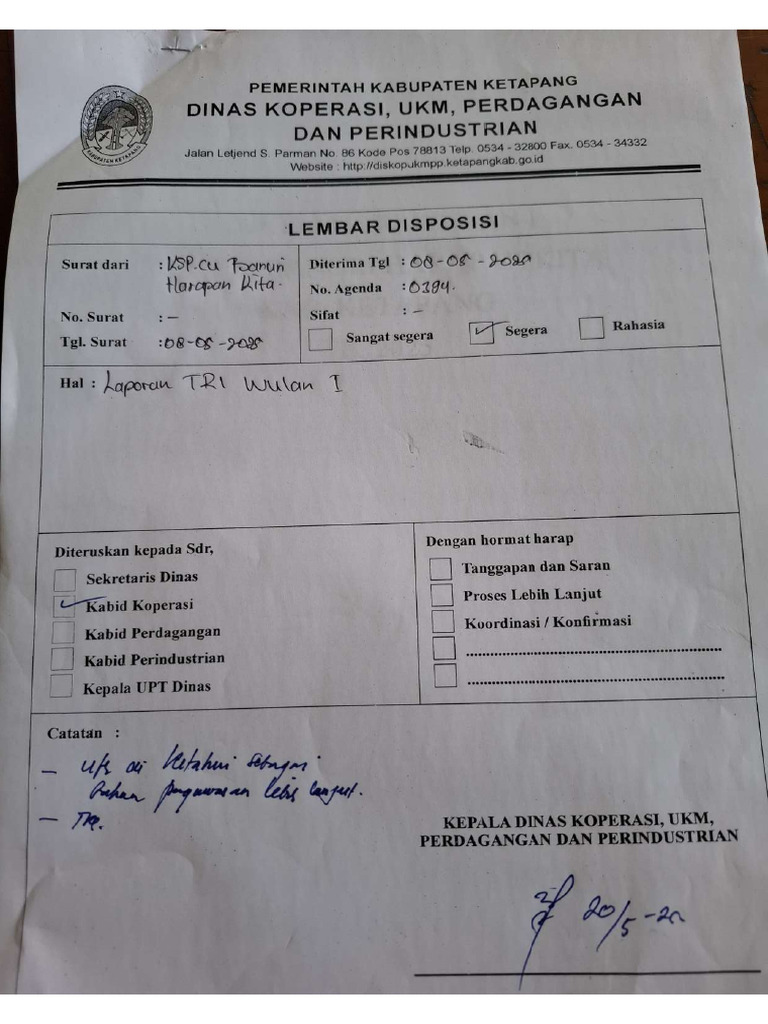 PEMERINTAH KABUPATEN KETAPANG
DINAS KOPERASI, UKM, PERDAGANGAN
DAN PERINDUSTRIAN
Jalan Letjend S. Parman No. 86 Kode Pos 78813 Telp. 0534 - 32800 Fax. 0534 - 34332
Website : http://diskopukmpp.ketapangkab.go.id
KABUPATEN KETAPANG
LEMBAR DISPOSISI
Surat dari : KSP. CU
Harapan Kita.
No. Surat : -
Tgl. Surat : 08-05-2025
Diterima Tgl : 08-05-2025
No. Agenda : 0394.
Sifat : -
Sangat segera
Segera
Rahasia
Hal : Laporan TRI Wulan I
Diteruskan kepada Sdr,
Sekretaris Dinas
Kabid Koperasi
Kabid Perdagangan
Kabid Perindustrian
Kepala UPT Dinas
Dengan hormat harap
Tanggapan dan Saran
Proses Lebih Lanjut
Koordinasi / Konfirmasi
Catatan :
- Utk di Ketahui sebagai
bahan pengawasan lebih lanjut.
KEPALA DINAS KOPERASI, UKM,
PERDAGANGAN DAN PERINDUSTRIAN
20/5-25